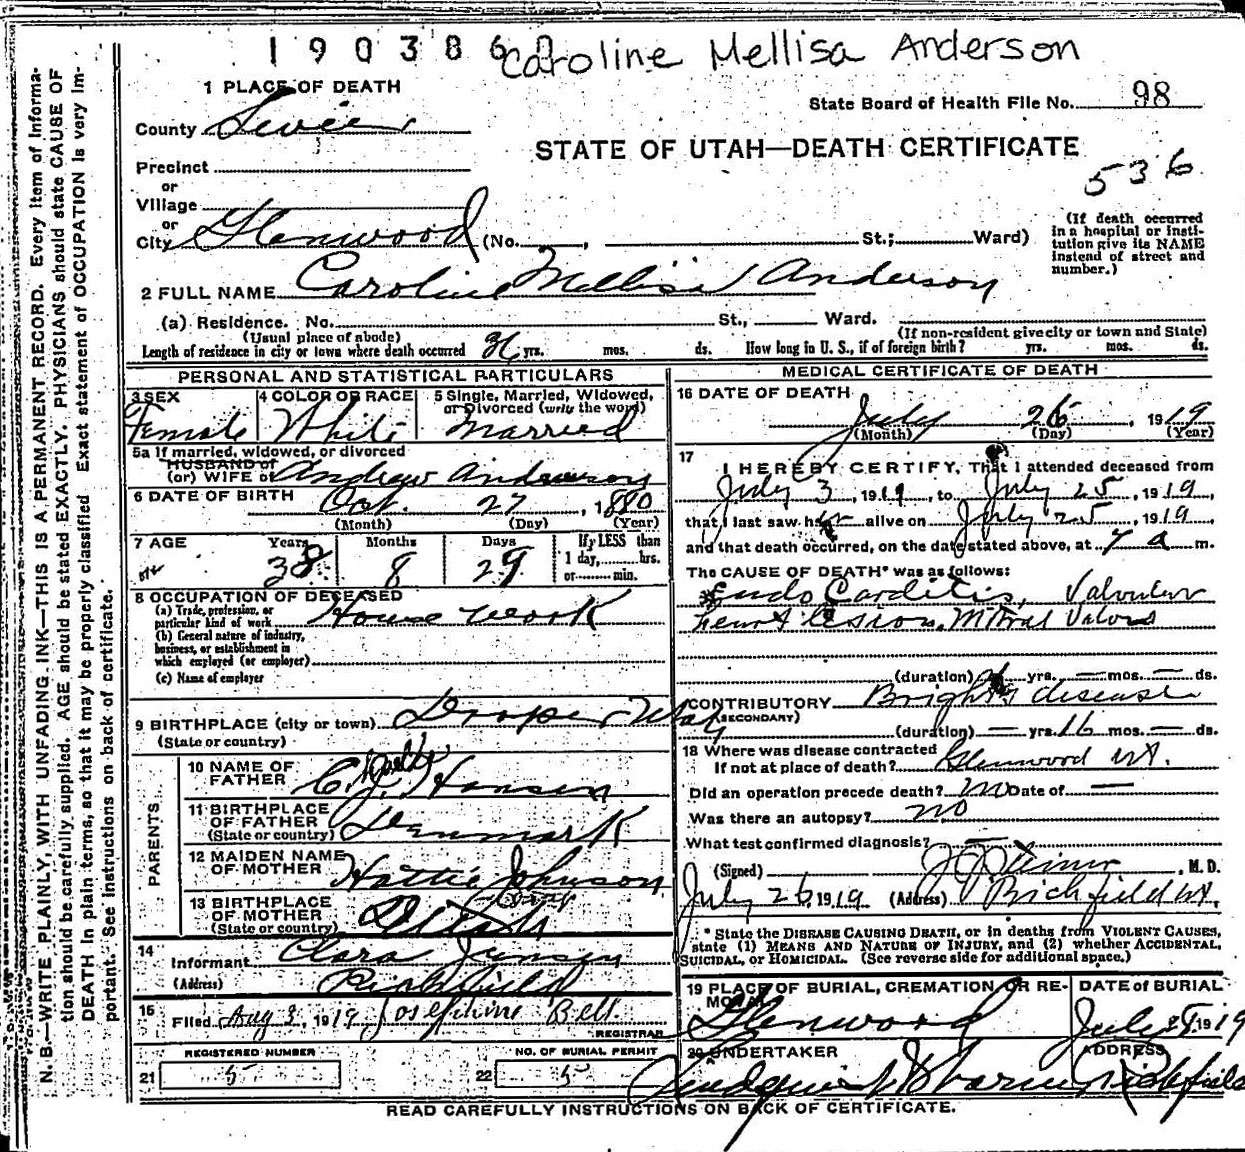 190386
Caroline Mellisa Anderson
1 PLACE OF DEATH
State Board of Health File No. 98
County Sevier
STATE OF UTAH—DEATH CERTIFICATE
536
Precinct
or
Village
or
City Glenwood (No. , St.; Ward)
(If death occurred in a hospital or institution give its NAME instead of street and number.)
2 FULL NAME Caroline Mellisa Anderson
(a) Residence. No. St., Ward.
(Usual place of abode) (If non-resident give city or town and State)
Length of residence in city or town where death occurred 36 yrs. mos. ds. How long in U. S., if of foreign birth? yrs. mos. ds.
PERSONAL AND STATISTICAL PARTICULARS
3 SEX Female
4 COLOR OR RACE White
5 Single, Married, Widowed, or Divorced (write the word) Married
5a If married, widowed, or divorced
HUSBAND of
(or) WIFE of Andrew Anderson
6 DATE OF BIRTH Oct. 27, 1880
(Month) (Day) (Year)
7 AGE Years 38 Months 8 Days 29 If LESS than 1 day, hrs. or min.
8 OCCUPATION OF DECEASED
(a) Trade, profession, or particular kind of work House work
(b) General nature of industry, business, or establishment in which employed (or employer)
(c) Name of employer
9 BIRTHPLACE (city or town) Draper Utah
(State or country)
PARENTS
10 NAME OF FATHER C. J. Hansen
11 BIRTHPLACE OF FATHER (State or country) Denmark
12 MAIDEN NAME OF MOTHER Hattie Johnson
13 BIRTHPLACE OF MOTHER (State or country)
14 Informant Clara Jensen
(Address) Richfield
15 Filed Aug 3, 1919 Josephine Bell
REGISTRAR
REGISTERED NUMBER
21 5
NO. OF BURIAL PERMIT
22 5
MEDICAL CERTIFICATE OF DEATH
16 DATE OF DEATH
July 26, 1919
(Month) (Day) (Year)
17 I HEREBY CERTIFY, That I attended deceased from
July 3, 1919, to July 25, 1919,
that I last saw her alive on July 25, 1919
and that death occurred, on the date stated above, at 7 a m.
The CAUSE OF DEATH* was as follows:
Endo Carditis, Valvular
heart lesion, Mitral Valves
(duration) yrs. — mos. — ds.
CONTRIBUTORY Brights disease
(SECONDARY)
(duration) — yrs. 16 mos. — ds.
18 Where was disease contracted
If not at place of death? Glenwood Ut.
Did an operation precede death? no Date of —
Was there an autopsy? no
What test confirmed diagnosis? —
(Signed) , M. D.
July 26, 1919 (Address) Richfield Ut.
* State the DISEASE CAUSING DEATH, or in deaths from VIOLENT CAUSES, state (1) MEANS AND NATURE OF INJURY, and (2) whether ACCIDENTAL, SUICIDAL, or HOMICIDAL. (See reverse side for additional space.)
19 PLACE OF BURIAL, CREMATION OR REMOVAL Glenwood
DATE of BURIAL July 28, 1919
20 UNDERTAKER
ADDRESS Richfield
READ CAREFULLY INSTRUCTIONS ON BACK OF CERTIFICATE.
N. B.—WRITE PLAINLY, WITH UNFADING INK—THIS IS A PERMANENT RECORD. Every item of information should be carefully supplied. AGE should be stated EXACTLY. PHYSICIANS should state CAUSE OF DEATH in plain terms, so that it may be properly classified. Exact statement of OCCUPATION is very important. See instructions on back of certificate.